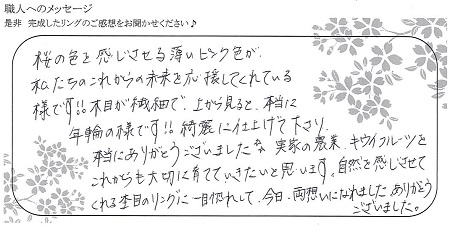 職人へのメッセージ
是非 完成したリングのご感想をお聞かせください♪
桜の色を感じさせる薄いピンク色が、
私たちのこれからの未来を応援してくれている
様です!!木目が繊細で、上から見ると、本当に
年輪の様です!!綺麗に仕上げて下さり、
本当にありがとうございました 実家の農業、キウイフルーツを
これからも大切に育てていきたいと思います。自然を感じさせて
くれる杢目のリングに一目惚れして、今日、両想いになれました ありがとう
ございました。